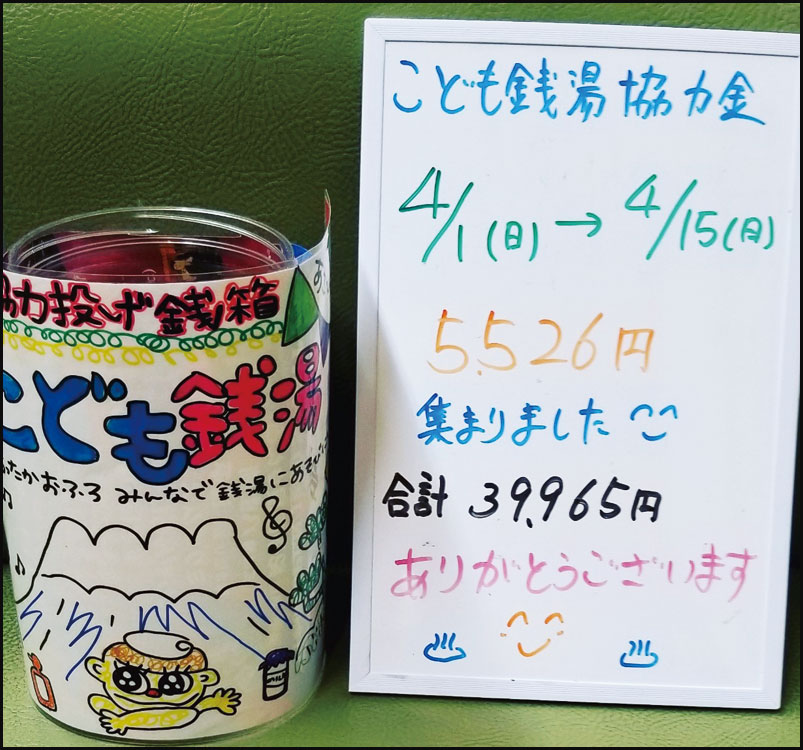 協力投げ銭箱
こども銭湯
ったかおふろ みんなで銭湯にあそび
MILK
こども銭湯協力金
4/1(日)→4/15(日)
5,526円
集まりました
合計 39,965円
ありがとうございます